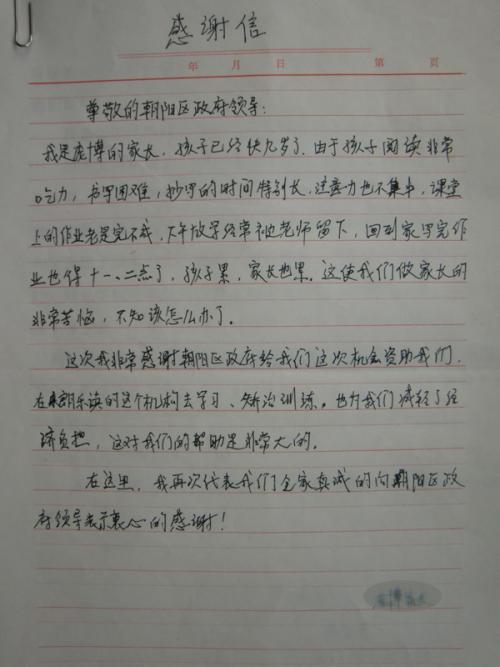 感谢信
年 月 日 第 页
尊敬的朝阳区政府领导：
我是庞博的家长，孩子已经快九岁了。由于孩子阅读非常
吃力，书写困难，抄写的时间特别长，注意力也不集中，课堂
上的作业老是完不成，下午放学经常被老师留下，回到家写完作
业也得十一、二点了，孩子累，家长也累。这使我们做家长的
非常苦恼，不知该怎么办了。
这次我非常感谢朝阳区政府给我们这次机会资助我们，
在朗乐读的这个机构去学习、矫治训练。也为我们减轻了经
济负担，这对我们的帮助是非常大的。
在这里，我再次代表我们全家真诚的向朝阳区政
府领导表示衷心的感谢！